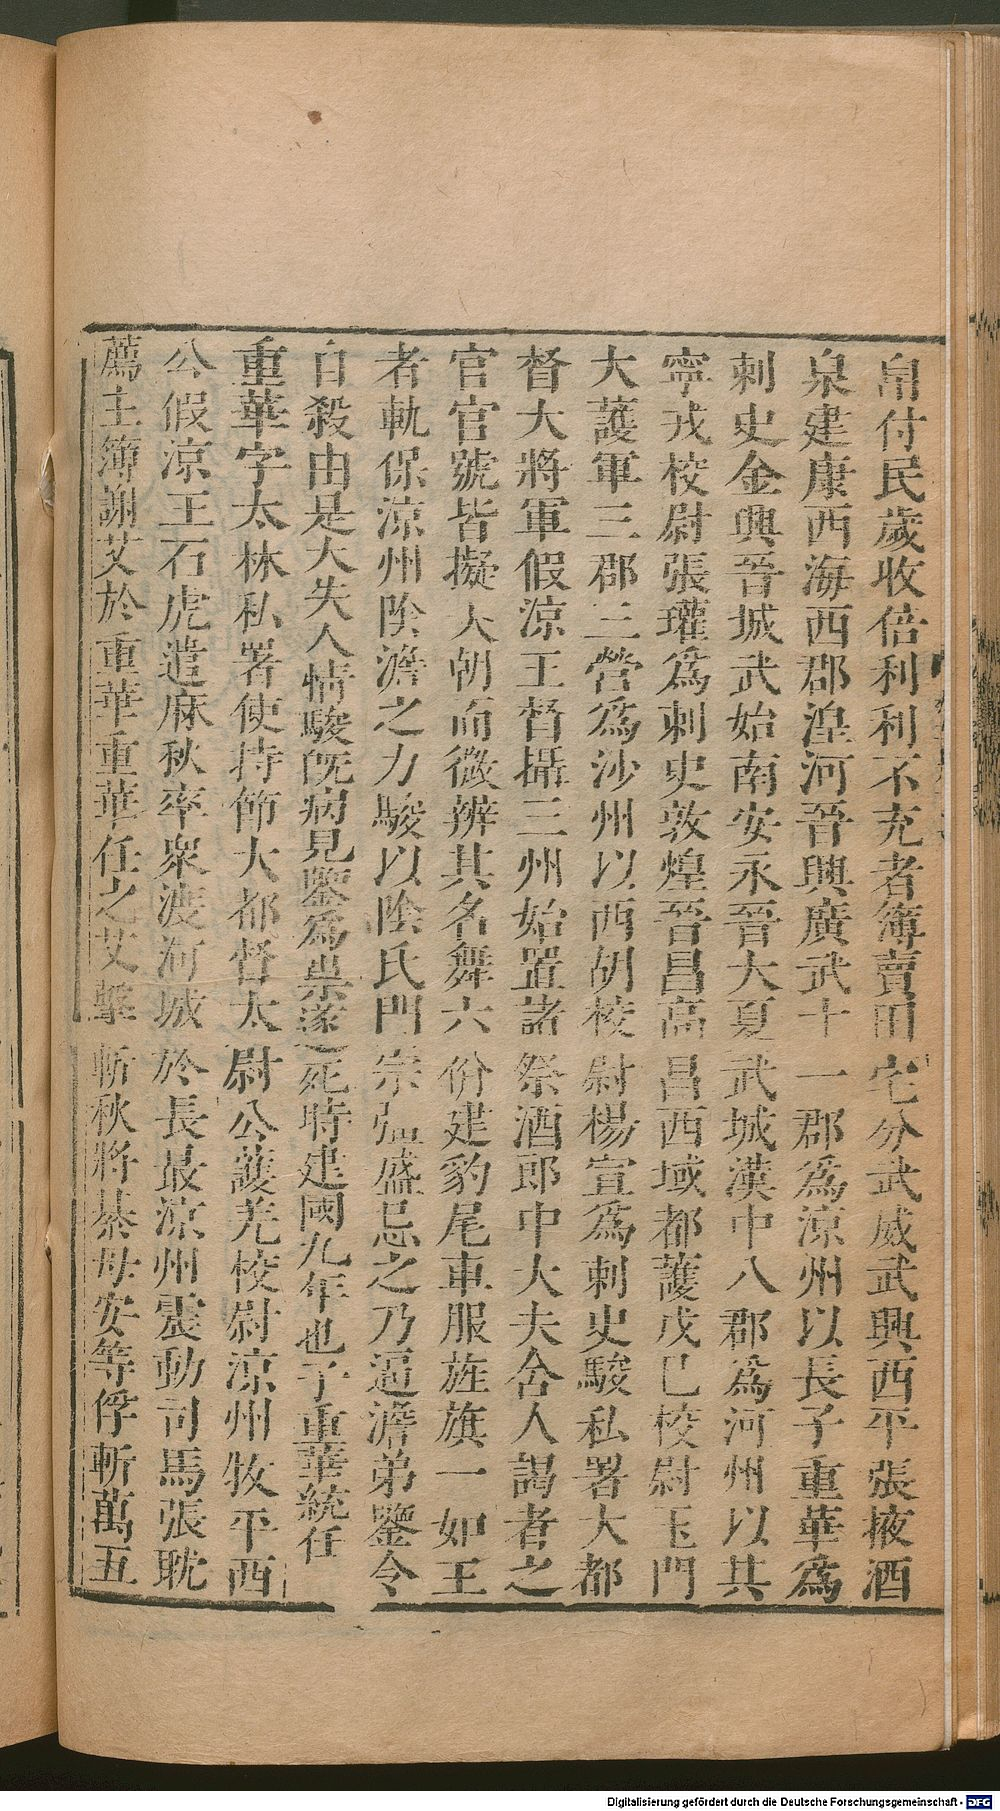 帛付民歲收倍利利不充者簿賣田宅分武威武興西平張掖酒
泉建康西海西郡湟河晉興廣武十一郡爲涼州以長子重華爲
刺史金興晉城武始南安永晉大夏武城漢中八郡爲河州以其
寧戎校尉張瓘爲刺史敦煌晉昌高昌西域都護戊巳校尉玉門
大護軍三郡三營爲沙州以西胡校尉楊宣爲刺史駿私署大都
督大將軍假涼王督攝三州始置諸祭酒郎中大夫舍人謁者之
官官號皆擬天朝而微辨其名舞六佾建豹尾車服旌旗一如王
者軌保涼州陰澹之力駿以陰氏門宗强盛忌之乃逼澹弟鑒令
自殺由是大失人情駿旣病見鑒爲祟遂死時建國九年也子重華統任
重華字太林私署使持節大都督太尉公護羌校尉涼州牧平西
公假涼王石虎遣麻秋率衆渡河城於長最涼州震動司馬張耽
薦主簿謝艾於重華重華任之艾擊斬秋將綦母安等俘斬萬五
Digitalisierung gefördert durch die Deutsche Forschungsgemeinschaft - DFG